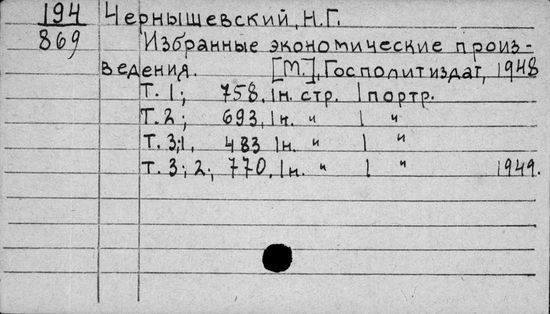 194 Чернышевский, Н.Г.
869 Избранные экономические произ-
ведения. [М.], Госполитиздат, 1948
Т. 1; 758, 1н. стр. 1 портр.
Т. 2; 693, 1н. " 1 "
Т. 3;1, 483 1н. " 1 "
Т. 3; 2; 770, 1н. " 1 " 1949.